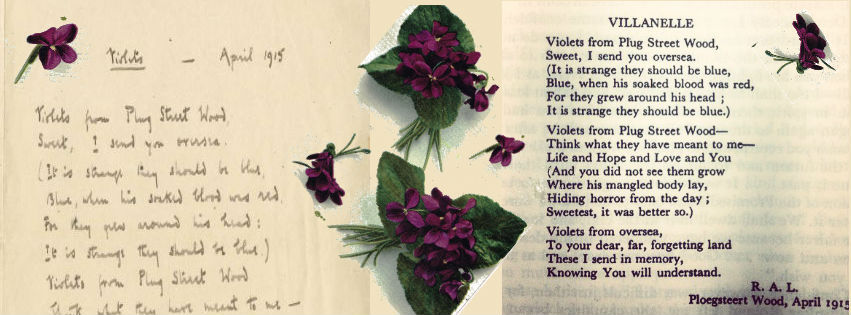 Violets — April 1915
Violets from Plug Street Wood,
Sweet, I send you oversea.
(It is strange they should be blue,
Blue, when his soaked blood was red,
For they grew around his head;
It is strange they should be blue.)
Violets from Plug Street Wood
Think what they have meant to me —
VILLANELLE
Violets from Plug Street Wood,
Sweet, I send you oversea.
(It is strange they should be blue,
Blue, when his soaked blood was red,
For they grew around his head ;
It is strange they should be blue.)
Violets from Plug Street Wood—
Think what they have meant to me—
Life and Hope and Love and You
(And you did not see them grow
Where his mangled body lay,
Hiding horror from the day ;
Sweetest, it was better so.)
Violets from oversea,
To your dear, far, forgetting land
These I send in memory,
Knowing You will understand.
R. A. L.
Ploegsteert Wood, April 1915